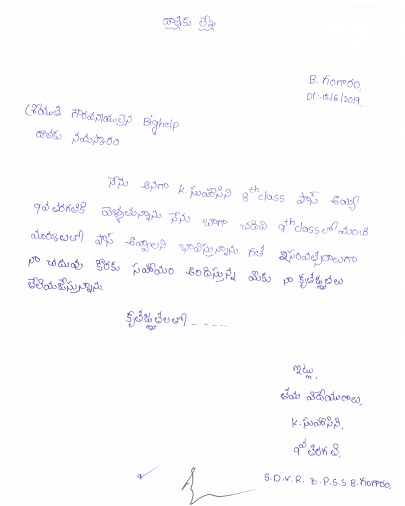 దాతకు లేఖ
B. గంగారం,
Dt:-15/6/2019.
శ్రీయుత గౌరవనీయులైన Bighelp
దాతకు నమస్కారం
నేను అనగా K. సుహాసిని 8th class పాస్ అయ్యి
9వ తరగతికి వెళ్తున్నాను. నేను బాగా చదివి 9th class లో మంచి
మార్కులతో పాస్ అవ్వాలని భావిస్తున్నాను. గత సంవత్సరాలుగా
నా చదువు కొరకు సహాయం అందిస్తున్న మీకు నా కృతజ్ఞతలు
తెలియజేస్తున్నాను.
కృతజ్ఞతలతో -----
ఇట్లు,
తమ విధేయురాలు,
K. సుహాసిని,
9వ తరగతి,
S.D.V.R. Z.P.S.S B. గంగారం.